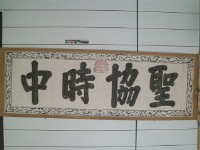 聖協時中